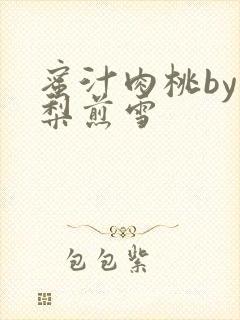 蜜汁肉桃by
梨煎雪
包包紫